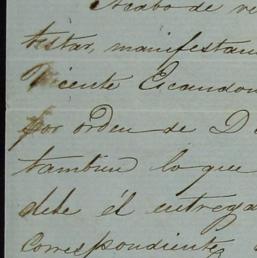 Acabo de re
testar, manifestan
Vicente Escandon
por orden de D
tambien lo que
debe él entrega
correspondiente